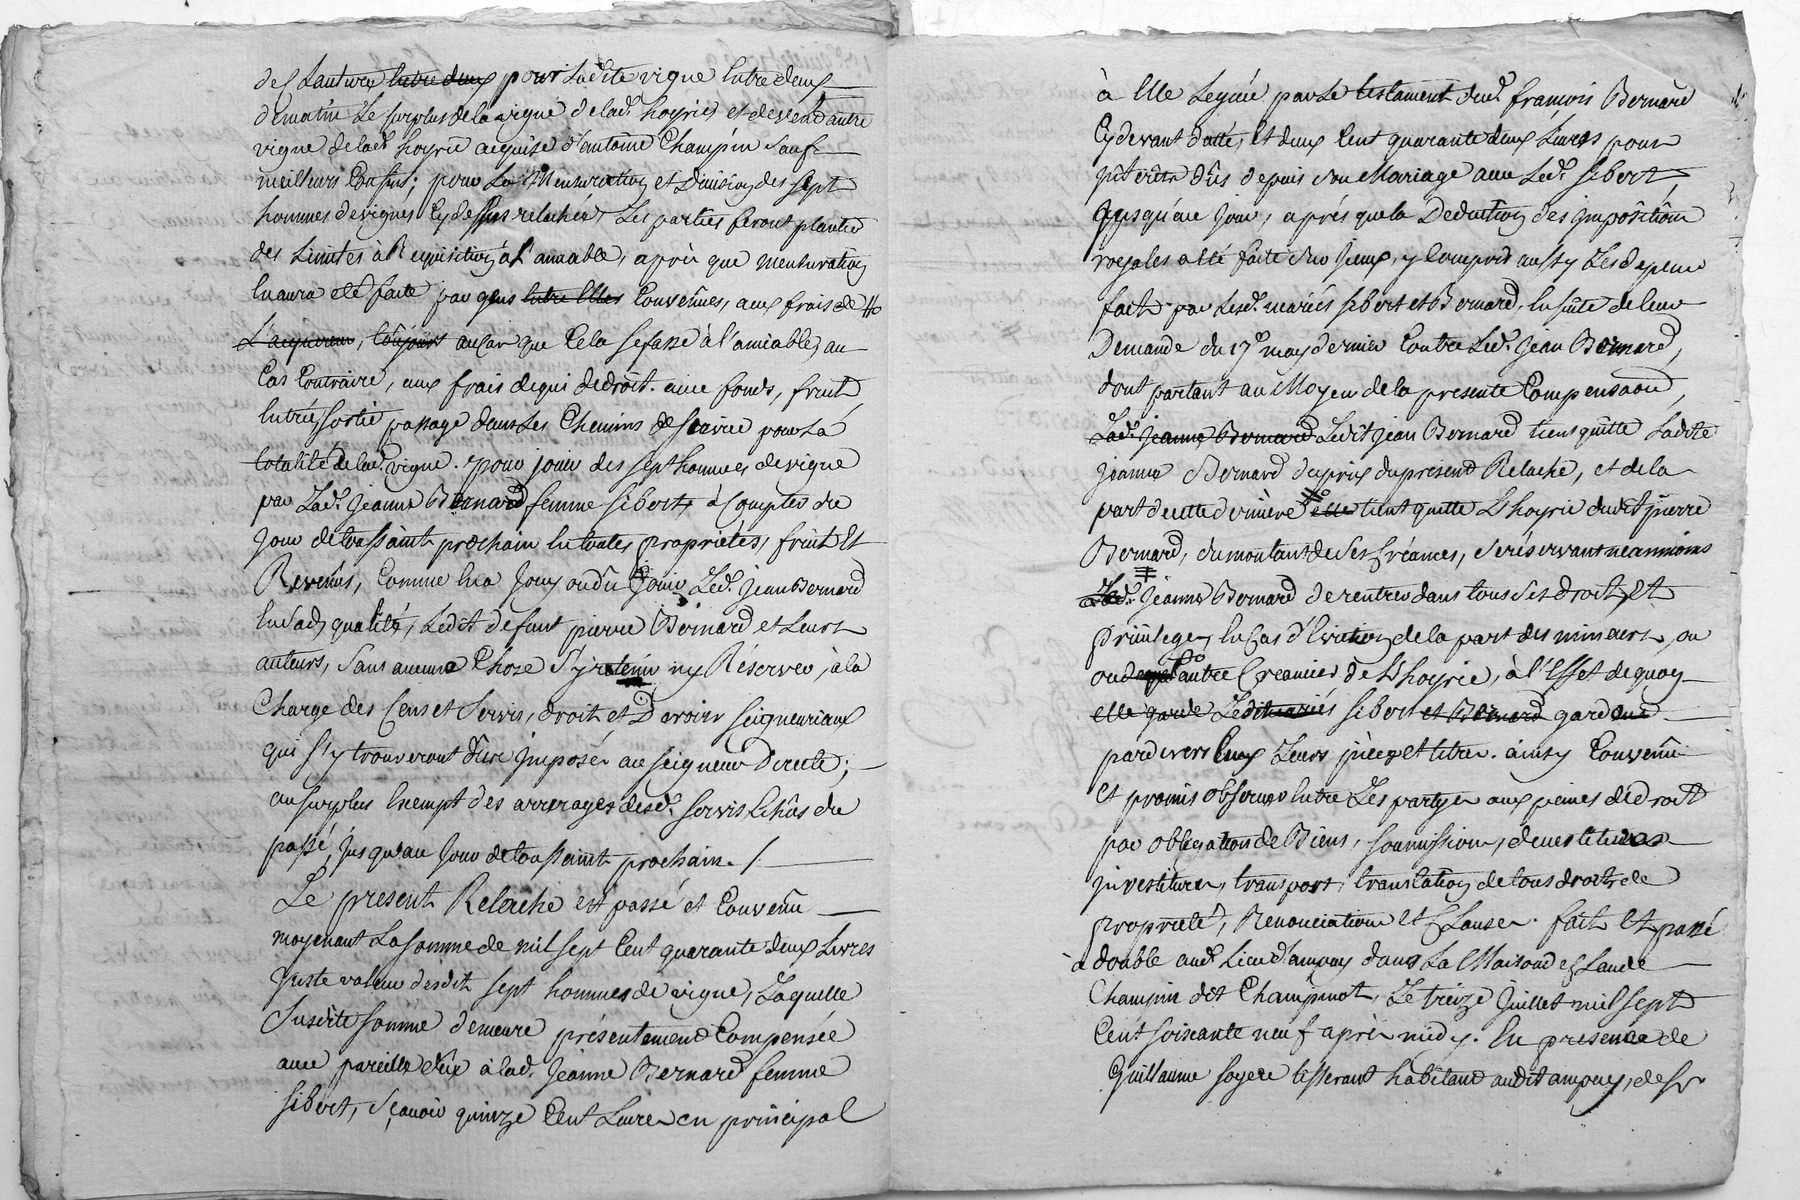 des Lautres entre deux pour ladite vigne entre deux
de matin Le surplus de la vigne de lad. hoyrie et de vend autre
vigne de lad. hoyrie acquise d'antoine Champin Sauf
meilleurs Confins; pour La Mensuration et Division des Sept
hommes de vignes Cy dessus relachés, Les parties feront planter
des Limites à Requisition à l'amiable, après que mensuration
en aura eté faite par gens entre Elles Convenües, aux frais de
L'acquereur, toûjours au cas que Cela se fasse à l'amiable, au
Cas Contraire, aux frais de qui de droit. avec fonds, fruits,
Entrée, Sortie passage dans Les Chemins de Servie pour La
totalité de lad. vigne. pour jouir des sept hommes de vigne
par Lad. Jeanne Bernard femme Sibert à Compter du
Jour de toussaint prochain En toutes proprietés, fruits Et
Revenûs, Comme En a Jouy ou dû Jouir Led. Jean Bernard
En Sad. qualité, Ledit defunt pierre Bernard et Leurs
auteurs, Sans aucune Chose S'y retenir ny Réserver, à la
Charge des Cens et Servis, droits et Devoirs Seigneuriaux
qui S'y trouveront dûs Imposés au Seigneur Directe;
au Surplus Exempt des arrerages desd. Servis Echûs du
passé, Jusqu'au Jour de toussaint prochain. /
Le present Relâche est passé et Convenu
moyenant La Somme de mil Sept Cent quarante deux Livres
Juste valeur desdits Sept hommes de vigne, Laquelle
Susdite Somme demeure présentement Compensée
avec pareille düe à lad. Jeanne Bernard femme
Sibert, Sçavoir quinze Cent Livres en principal
à Elle Leguée par Le testament dud. françois Bernard
Cy devant datté, Et deux Cent quarante deux Livres pour
Intérêts dûs depuis Son Mariage avec Led. Sibert
Jusqu'au Jour, après que la Deduction des Impositions
royales a eté faite Sur Iceux, y Compris aussy Les depens
faits par Lesd. mariés Sibert et Bernard. En Suite de leur
Demande du 17e may dernier Contre Led. Jean Bernard,
dont partant au Moyen de la presente Compensaõn,
Lad. Jeanne Bernard Ledit Jean Bernard tient quitte Ladite
Jeanne Bernard du prix du présent Relache, et de la
part de cette derniere elle tient quitte L'hoyrie dudit pierre
Bernard, du montant de Ses Créances, Se réservant neanmoins
Lad. Jeanne Bernard de rentrer dans tous Ses droits Et
Privileges, En Cas d'Eviction de la part des mineurs, ou
autre Creancier de L'hoyrie, à l'Effet de quoy
elle garde Lesdits mariés Sibert et Bernard gardent
pardevers Eux Leurs pièces et titres. ainsy Convenu
Et promis observer Entre Les partyes aux peines de droit
par obligation de Biens, Soumissions, devestitures
Investitures, transport, translation de tous droits de
propriété, Renonciations et Clauses. fait Et passé
à double aud. Lieu d'ampuy dans La Maison de Claude
Champin dit Champinot, Le treize Juillet mil Sept
Cent Soixante neuf après midy. En presence de
Guillaume Soyere tisserant habitant audit ampuy, de Sr